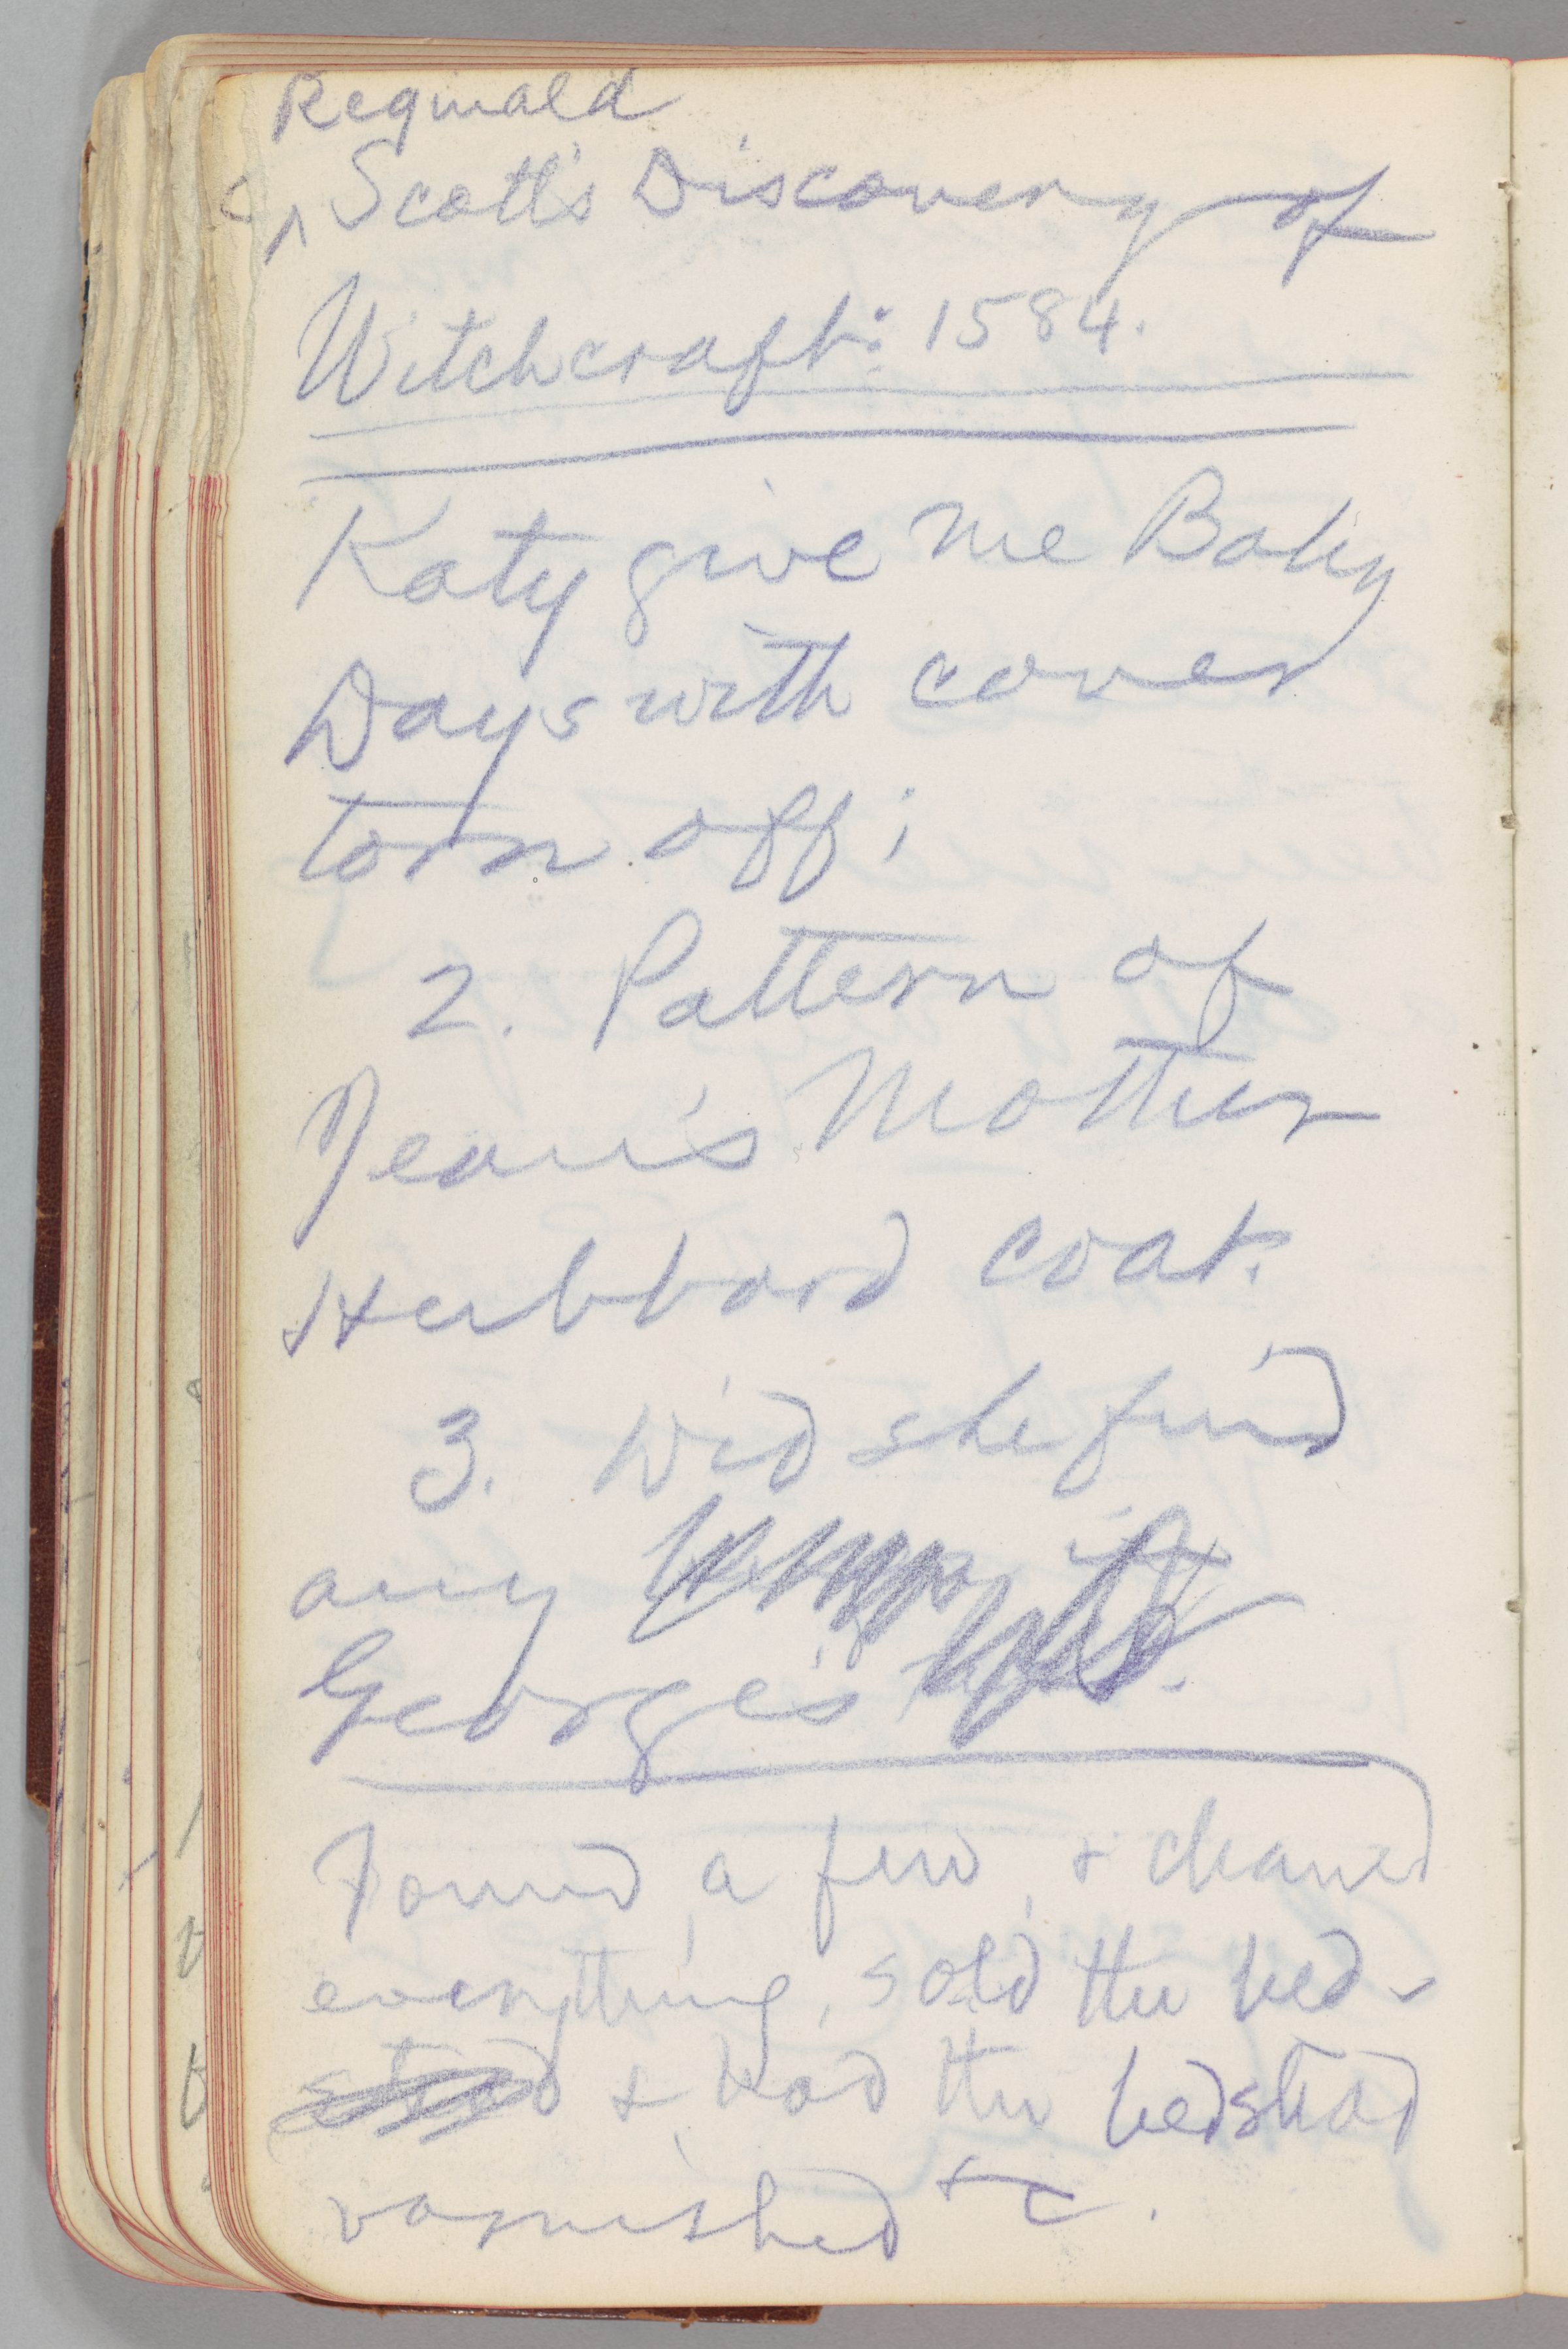 Reginald
^ Scott's Discovery of
Witchcraft: 1584.
Katy give me Baby
Days with cover
torn off;
2. Pattern of
Jean's Mother
Hubbard coat.
3. Did she find
any
George's
Found a few, & cleaned
everything, sold the bed-
stead & had the bedstead
varnished &c.